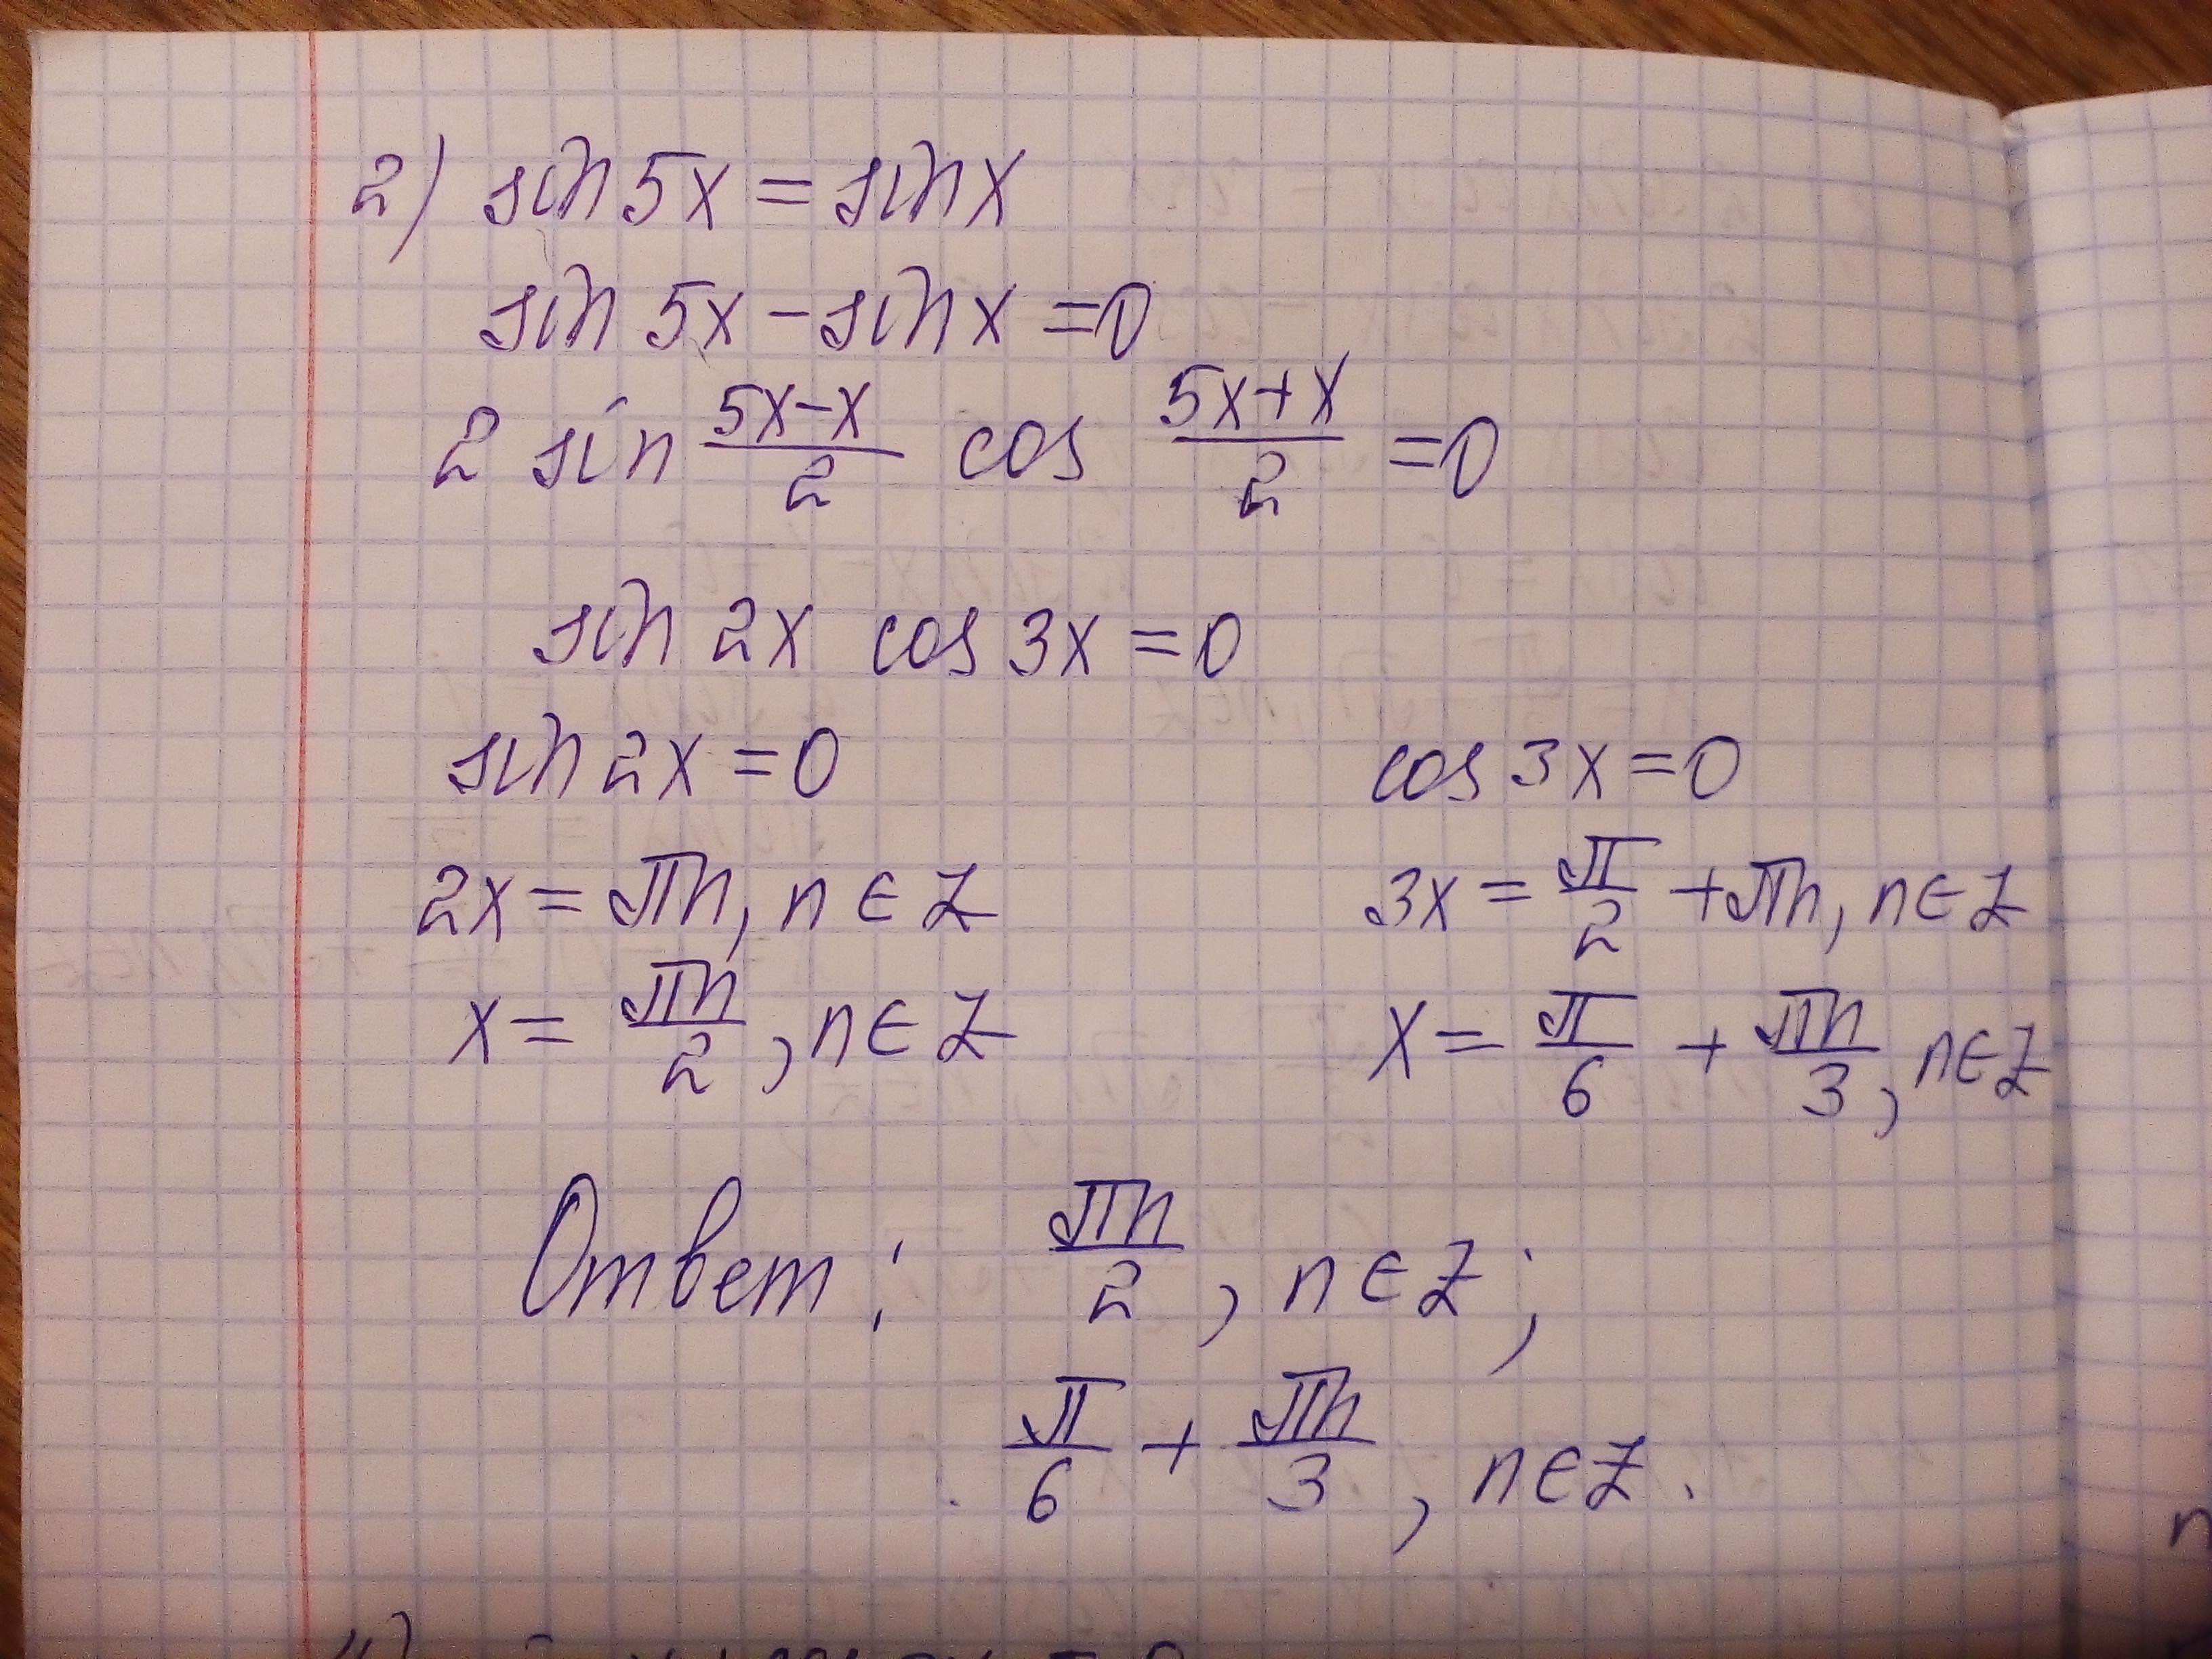 2) sin 5x = sin x
sin 5x - sin x = 0
2 sin (5x-x)/2 cos (5x+x)/2 = 0
sin 2x cos 3x = 0
sin 2x = 0 cos 3x = 0
2x = πn, n ∈ Z 3x = π/2 + πn, n ∈ Z
x = πn/2, n ∈ Z x = π/6 + πn/3, n ∈ Z
Ответ: πn/2, n ∈ Z;
π/6 + πn/3, n ∈ Z.